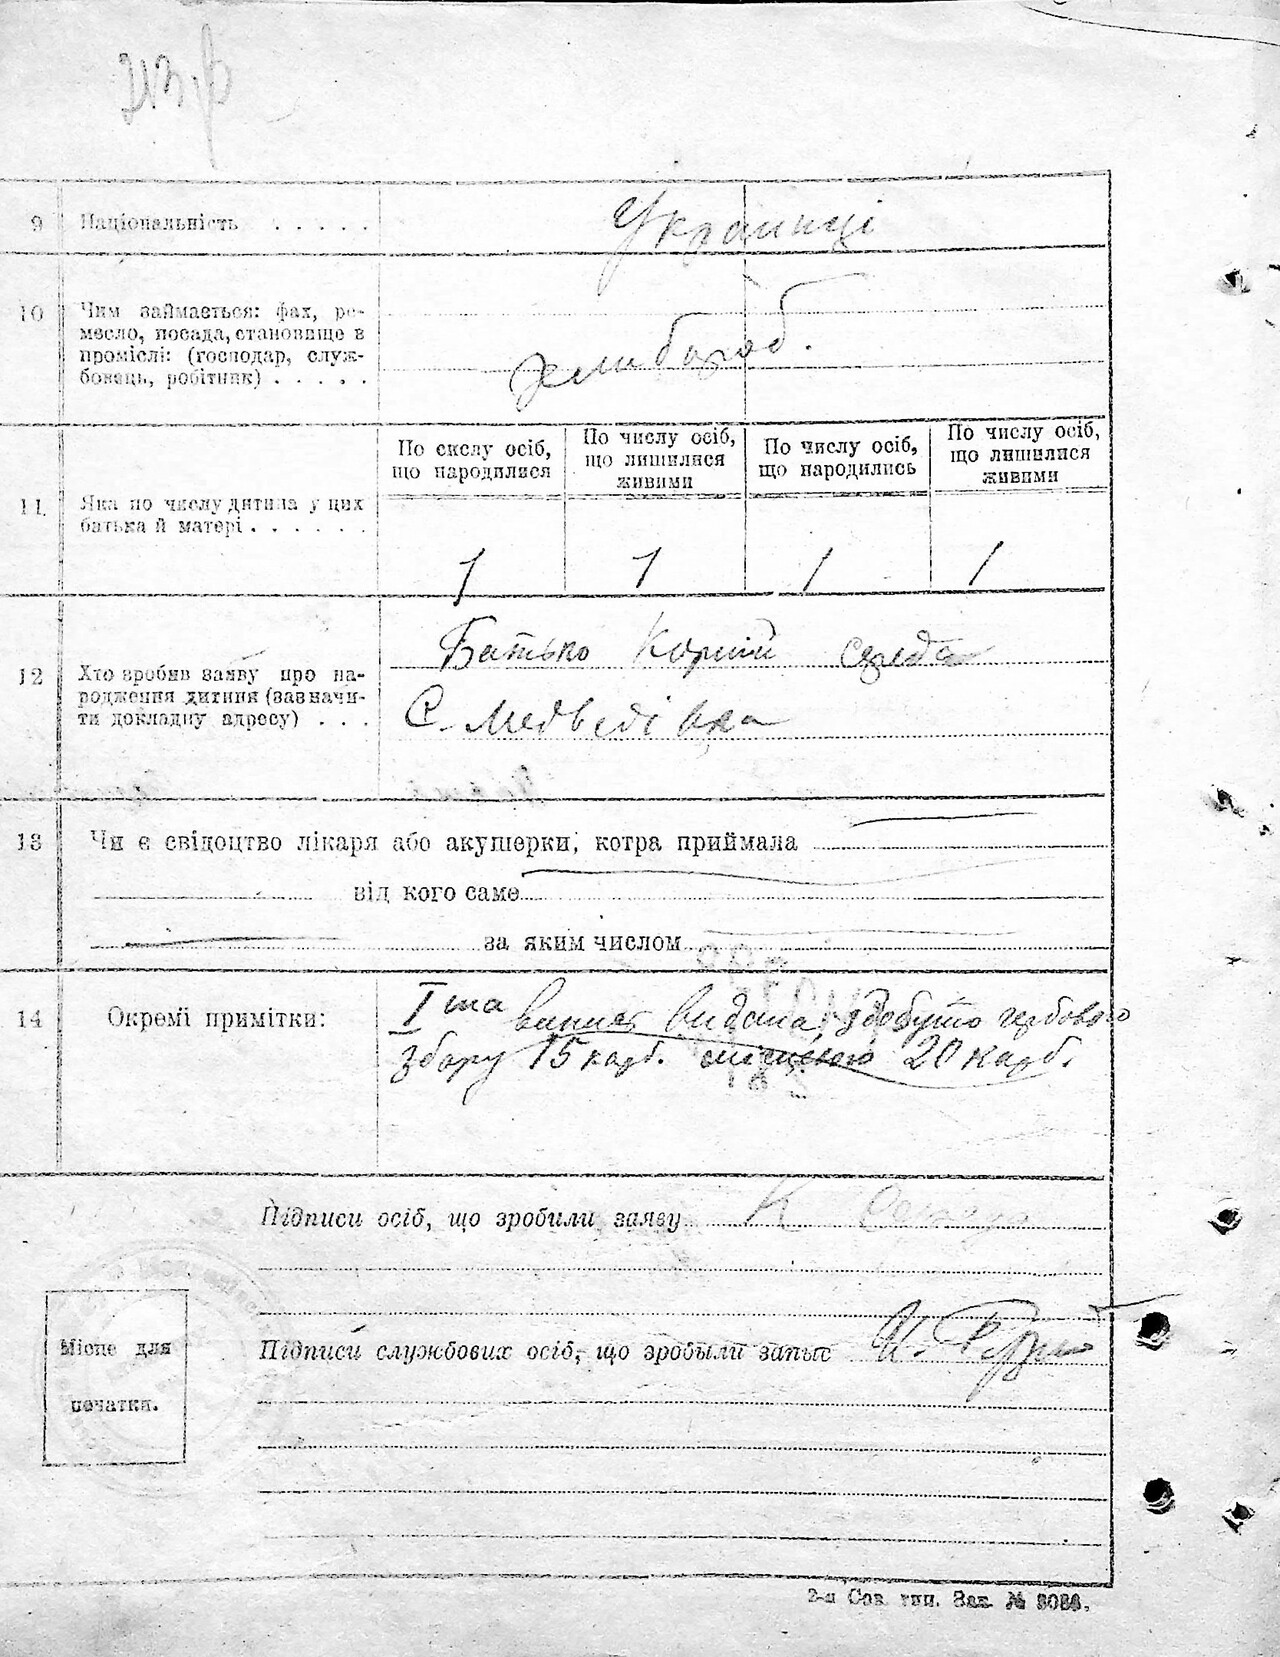 9 Національність . . . . . Украинці
10 Чим займається: фах, ре-
месло, посада, становище в
промислі: (господар, служ-
бовець, робітник) . . . . .
11. Яка по числу дитина у цих
батька й матері . . . . . .
По числу осіб, що народилися
По числу осіб, що лишилися живими
По числу осіб, що народились
По числу осіб, що лишилися живими
1 1 1 1
12 Хто зробив заяву про на-
родження дитини (зазначи-
ти докладну адресу) . . .
Батько Корній середа
С. Медведівка
13 Чи є свідоцтво лікаря або акушерки, котра приймала
від кого саме
за яким числом
14 Окремі примітки:
І та видана, здобуто гербового
збору 15 карб. місцевого 20 карб.
Підписи осіб, що зробили заяву К Середа
Підписи службових осіб, що зробыли запыс
Місце для
печатки.
2-я Сов. тип. Зак. №